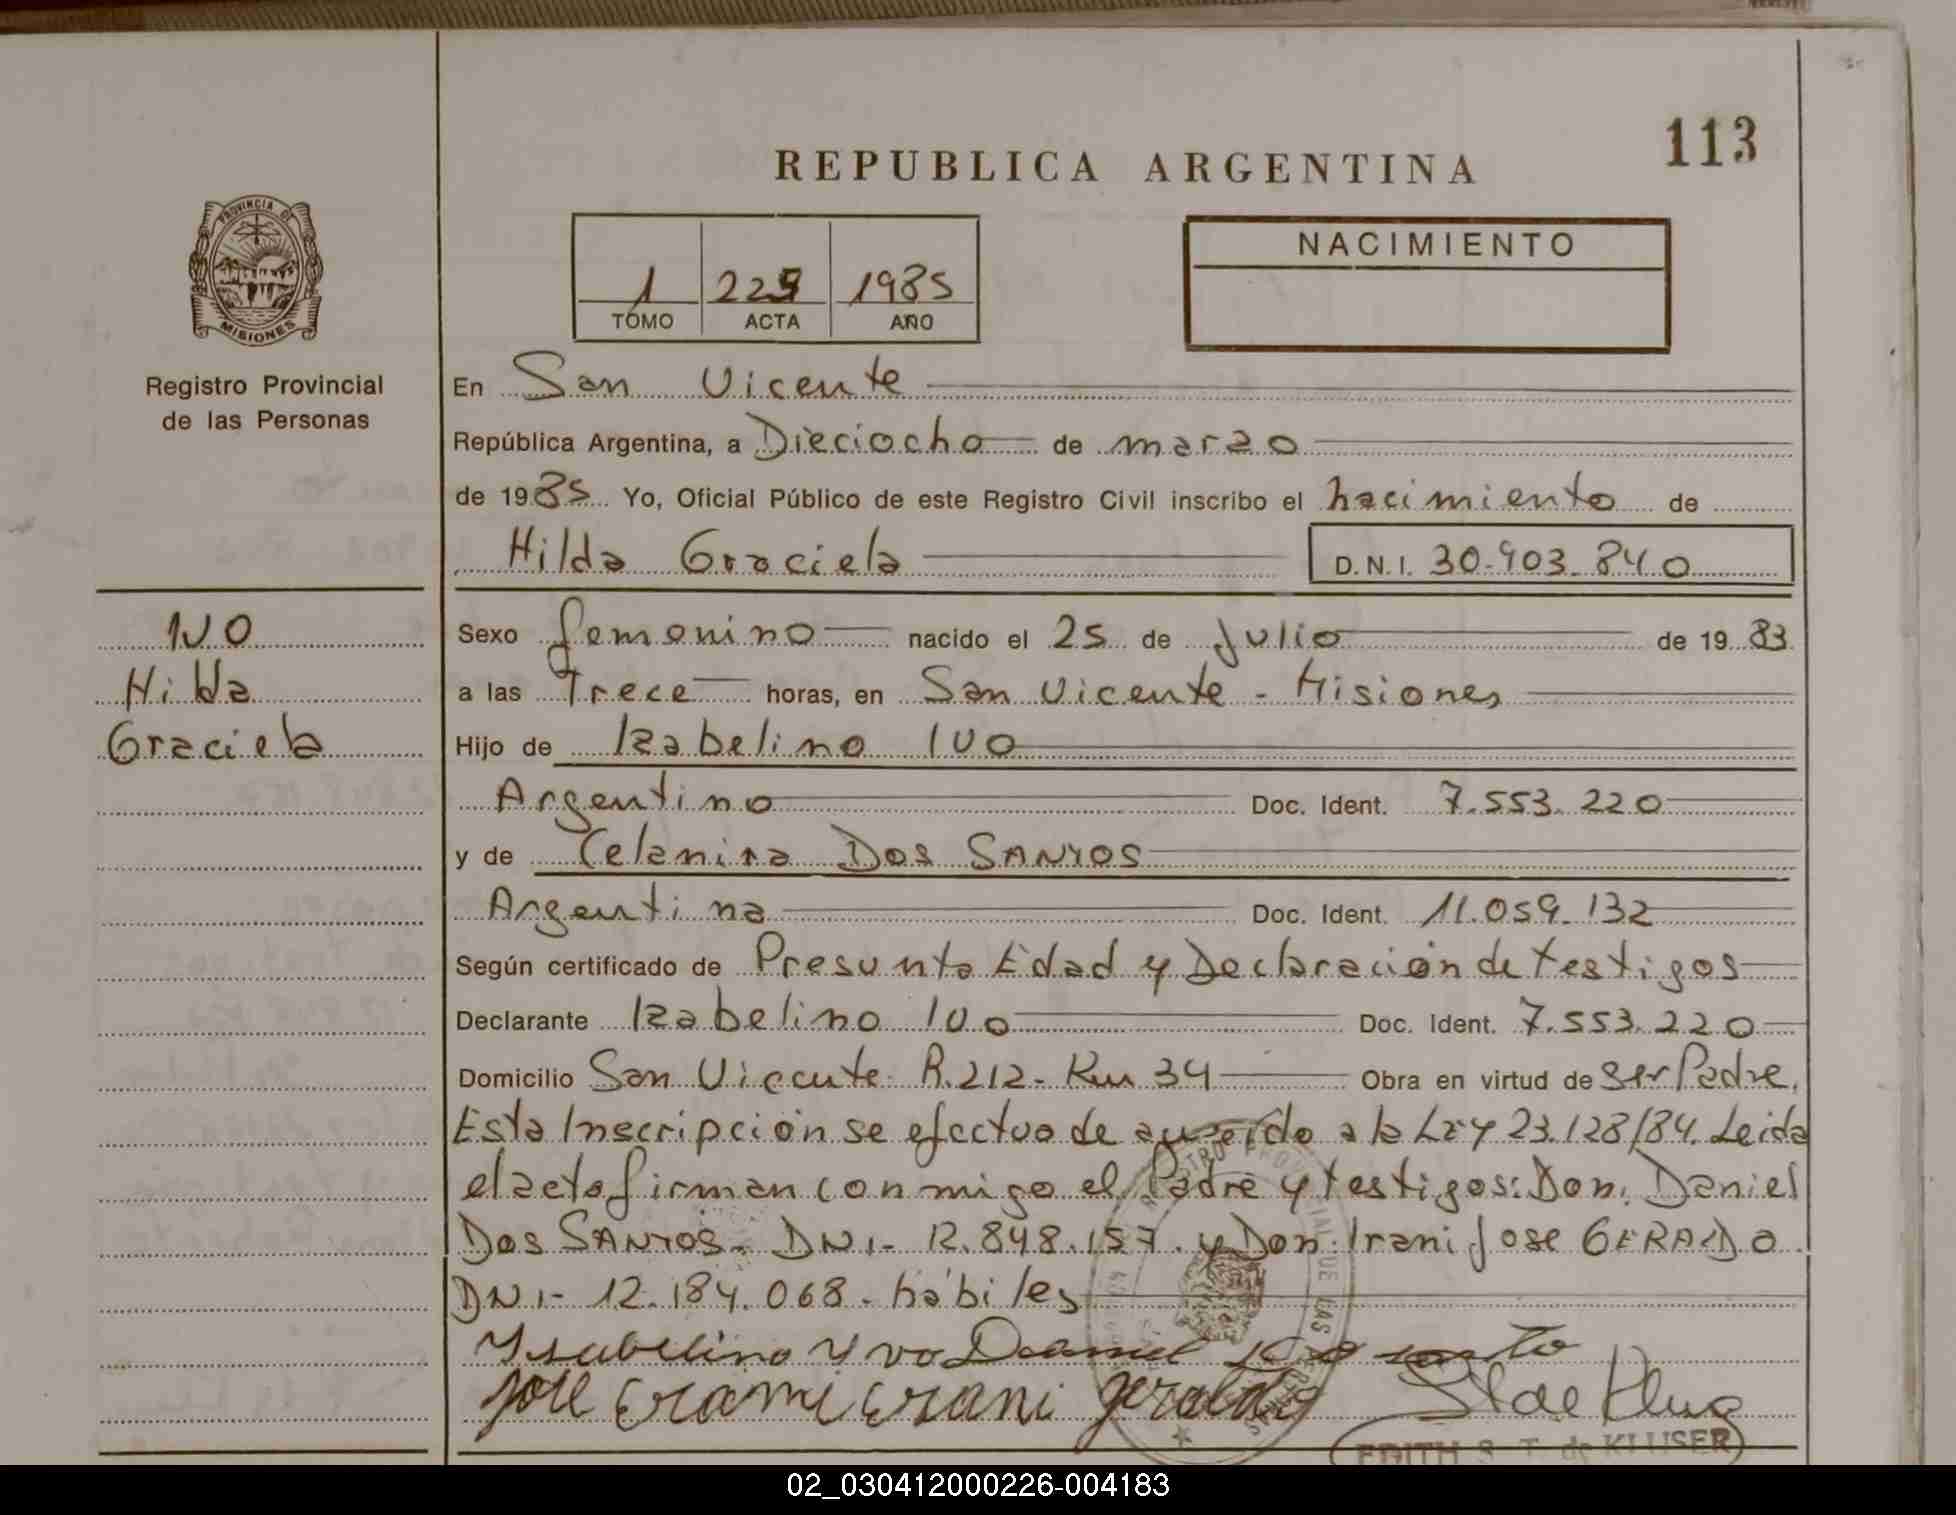 113
REPUBLICA ARGENTINA
PROVINCIA DE
MISIONES
Registro Provincial
de las Personas
1 225 1985
TOMO ACTA AÑO
NACIMIENTO
En San Vicente
República Argentina, a Dieciocho de marzo
de 1985 Yo, Oficial Público de este Registro Civil inscribo el nacimiento de
Hilda Graciela D.N.I. 30.903.840
IVO
Hilda
Graciela
Sexo femenino nacido el 25 de Julio de 1983
a las Trece horas, en San Vicente - Misiones
Hijo de Izabelino IVO
Argentino Doc. Ident. 7.553.220
y de Celanira Dos SANTOS
Argentina Doc. Ident. 11.059.132
Según certificado de Presunta Edad y Declaración de testigos
Declarante Izabelino IVO Doc. Ident. 7.553.220
Domicilio San Vicente R.212- Km 34 Obra en virtud de ser Padre.
Esta Inscripción se efectua de acuerdo a la Ley 23.128/84. Leida
el acta firman conmigo el Padre y testigos: Don. Daniel
Dos SANTOS. DNI- 12.848.157. y Don. Irani Jose GERALDO.
DNI- 12.184.068. habiles
Ysabelino Yvo Daniel
Jose Erami Erani Geraldo
EDITH S. T. de KLUSER
02_030412000226-004183